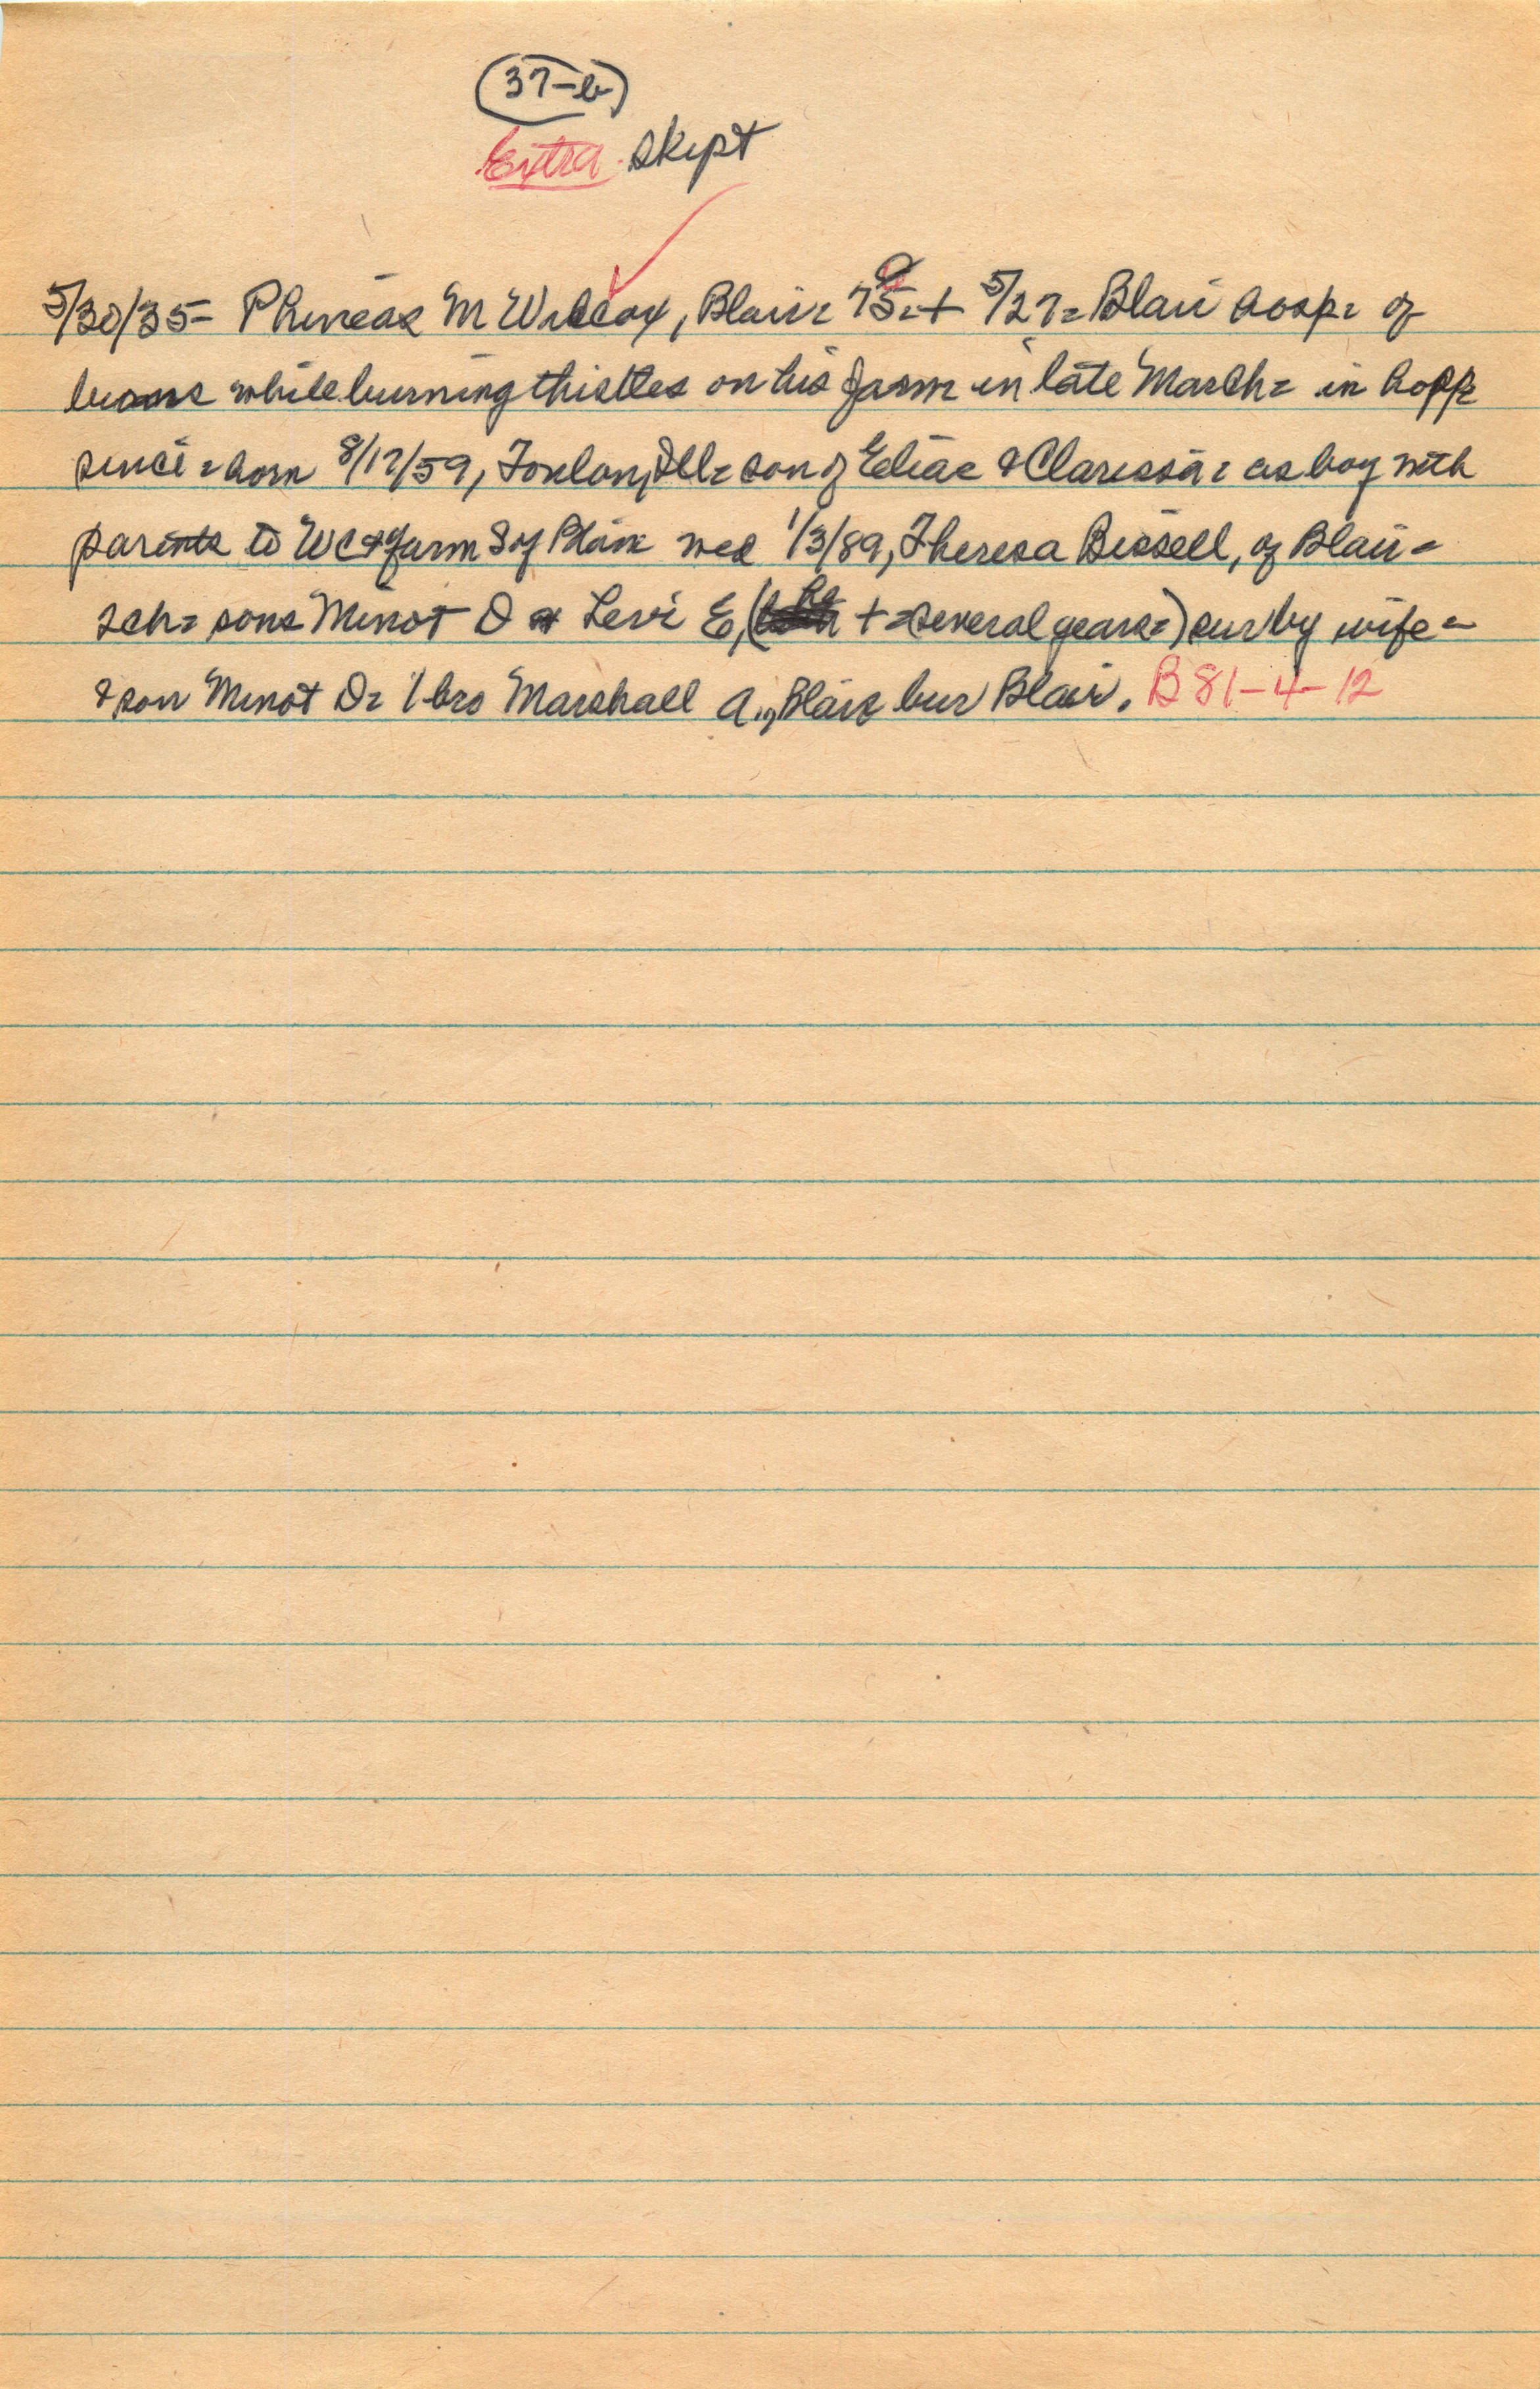 37-b
Extra skipt
5/30/35= Phineas M Wilcox, Blair= 75=+ 5/27= Blair hosp= of
burns while burning thistles on his farm in late March= in hosp=
since= born 8/17/59, Ill= son of Elias & Clarissa= as boy with
parents to WC & farm S of Blair= wed 1/3/89, Theresa Bissell, of Blair=
2ch= sons Minot O & Levi E, (Le +=several years=) sur by wife=
& son Minot O= 1 bro Marshall A., Blair= bur Blair. B 81-4-12